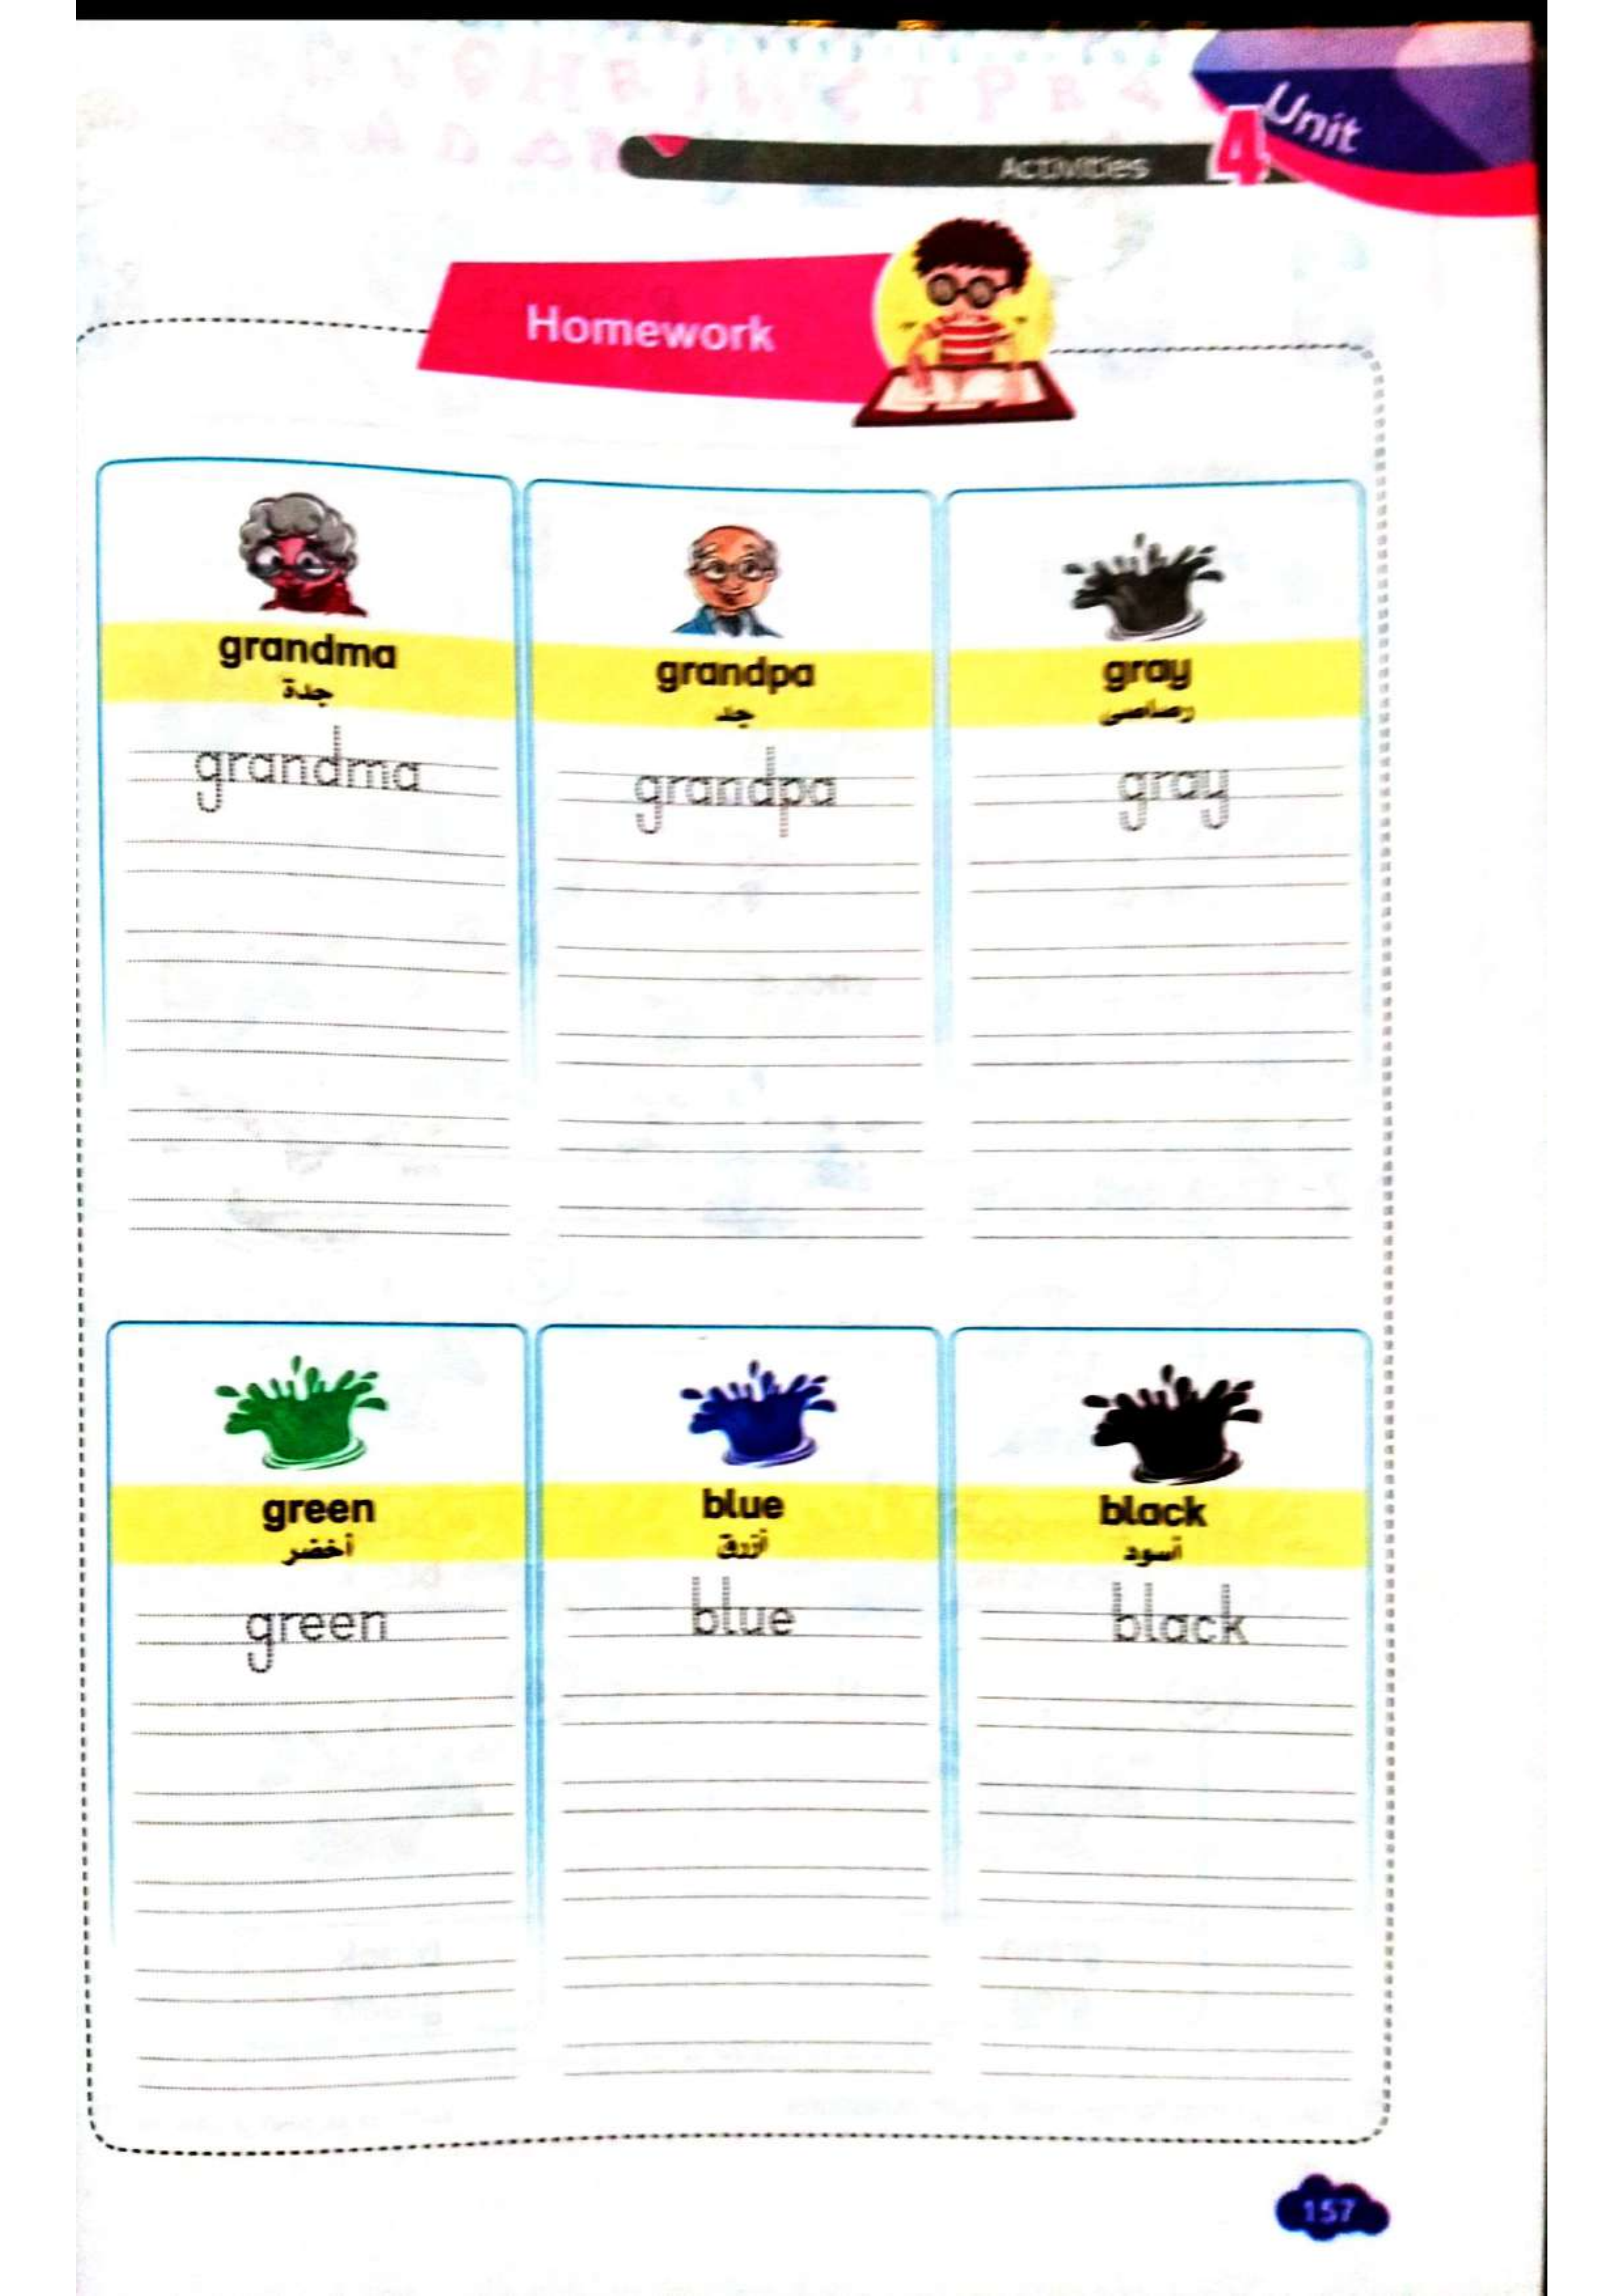 Unit
4
Activities
Homework
grandma
جدة
grandma
grandpa
جد
grandpa
gray
رصاصى
gray
green
أخضر
green
blue
أزرق
blue
black
أسود
black
157